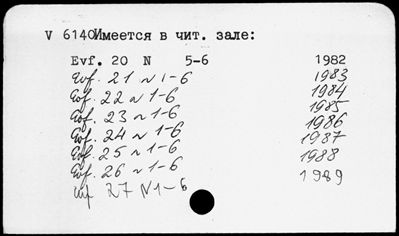 V 6140 Имеется в чит. зале:
Evf. 20 N 5-6 1982
Evf. 21 N 1-6 1983
Evf. 22 N 1-6 1984
Evf. 23 N 1-6 1985
Evf. 24 N 1-6 1986
Evf. 25 N 1-6 1987
Evf. 26 N 1-6 1988
Evf 27 N 1-6 1989